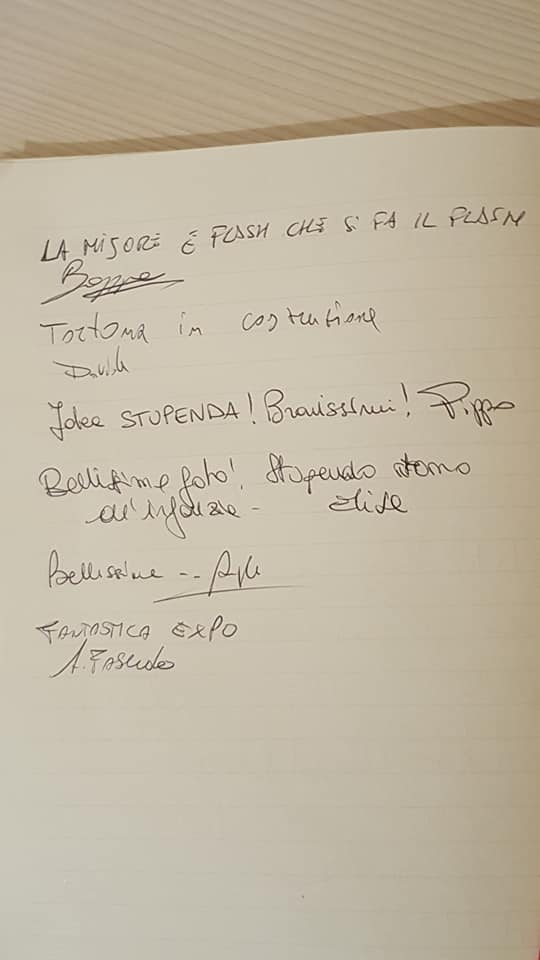 LA MISORE È FLASH CHE SI FA IL PLASM
Beppe
Tortona in costruzione
Davide
Idea STUPENDA! Bravissimi! Pippo
Bellissime foto! Stupendo ritorno
all'infanzia - Elise
Bellissime --
FANTASTICA EXPO